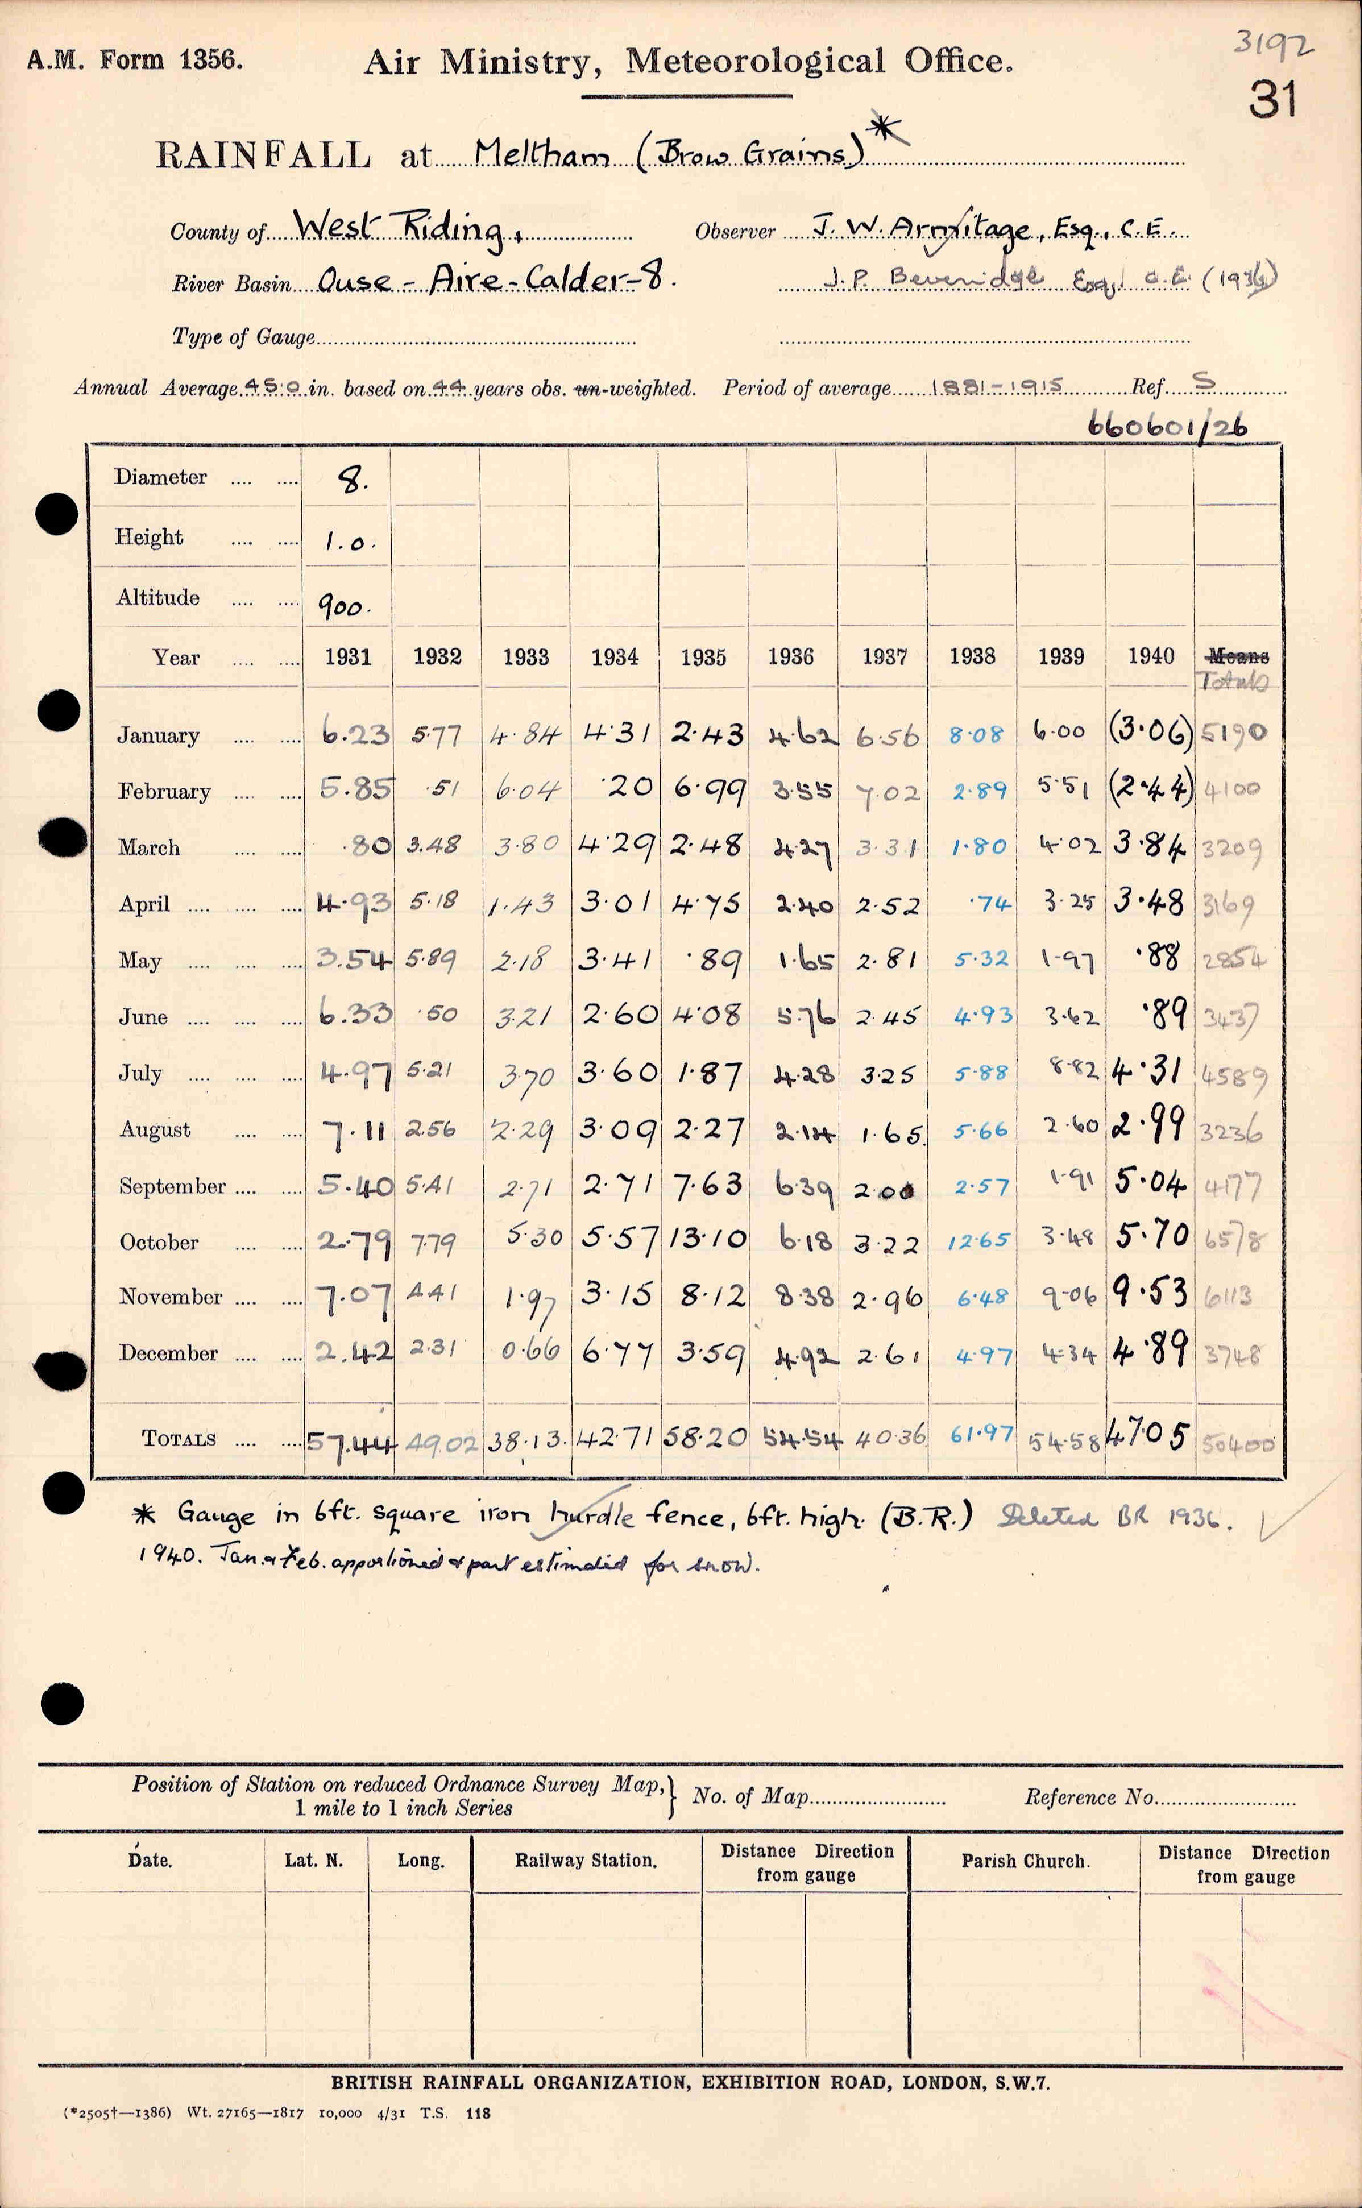 3192
A.M. Form 1356.
Air Ministry, Meteorological Office.
31
RAINFALL at Meltham (Brow Grains) *
County of West Riding, Observer J. W. Armitage, Esq., C.E.
River Basin Ouse - Aire - Calder - 8. J. P. Beveridge Esq C.E. (1936)
Type of Gauge
Annual Average 45.0 in. based on 44 years obs. un-weighted. Period of average 1881-1915 Ref. S
660601/26
Diameter .... .... 8.
Height .... .... 1.0.
Altitude .... .... 900.
Year .... .... 1931 1932 1933 1934 1935 1936 1937 1938 1939 1940 Means
Totals
January .... .... 6.23 5.77 4.84 4.31 2.43 4.62 6.56 8.08 6.00 (3.06) 5190
February .... .... 5.85 .51 6.04 .20 6.99 3.55 7.02 2.89 5.51 (2.44) 4100
March .... .... .80 3.48 3.80 4.29 2.48 4.27 3.31 1.80 4.02 3.84 3209
April .... .... .... 4.93 5.18 1.43 3.01 4.75 2.40 2.52 .74 3.25 3.48 3169
May .... .... .... 3.54 5.89 2.18 3.41 .89 1.65 2.81 5.32 1.97 .88 2854
June .... .... .... 6.33 .50 3.21 2.60 4.08 5.76 2.45 4.93 3.62 .89 3437
July .... .... .... 4.97 5.21 3.70 3.60 1.87 4.28 3.25 5.88 8.82 4.31 4589
August .... .... 7.11 2.56 2.29 3.09 2.27 2.14 1.65 5.66 2.60 2.99 3236
September .... .... 5.40 5.41 2.71 2.71 7.63 6.39 2.00 2.57 1.91 5.04 4177
October .... .... 2.79 7.79 5.30 5.57 13.10 6.18 3.22 12.65 3.48 5.70 6578
November .... .... 7.07 4.41 1.97 3.15 8.12 8.38 2.96 6.48 9.06 9.53 6113
December .... .... 2.42 2.31 0.66 6.77 3.59 4.92 2.61 4.97 4.34 4.89 3748
TOTALS .... .... 57.44 49.02 38.13 42.71 58.20 54.54 40.36 61.97 54.58 47.05 50400
* Gauge in 6ft. square iron hurdle fence, 6ft. high. (B.R.) Deleted BR 1936.
1940. Jan. & Feb. apportioned & part estimated for snow.
Position of Station on reduced Ordnance Survey Map, } No. of Map Reference No.
1 mile to 1 inch Series
Date. Lat. N. Long. Railway Station. Distance Direction from gauge Parish Church. Distance Direction from gauge
BRITISH RAINFALL ORGANIZATION, EXHIBITION ROAD, LONDON, S.W.7.
(*2505†—1386) Wt. 27165—1817 10,000 4/31 T.S. 118